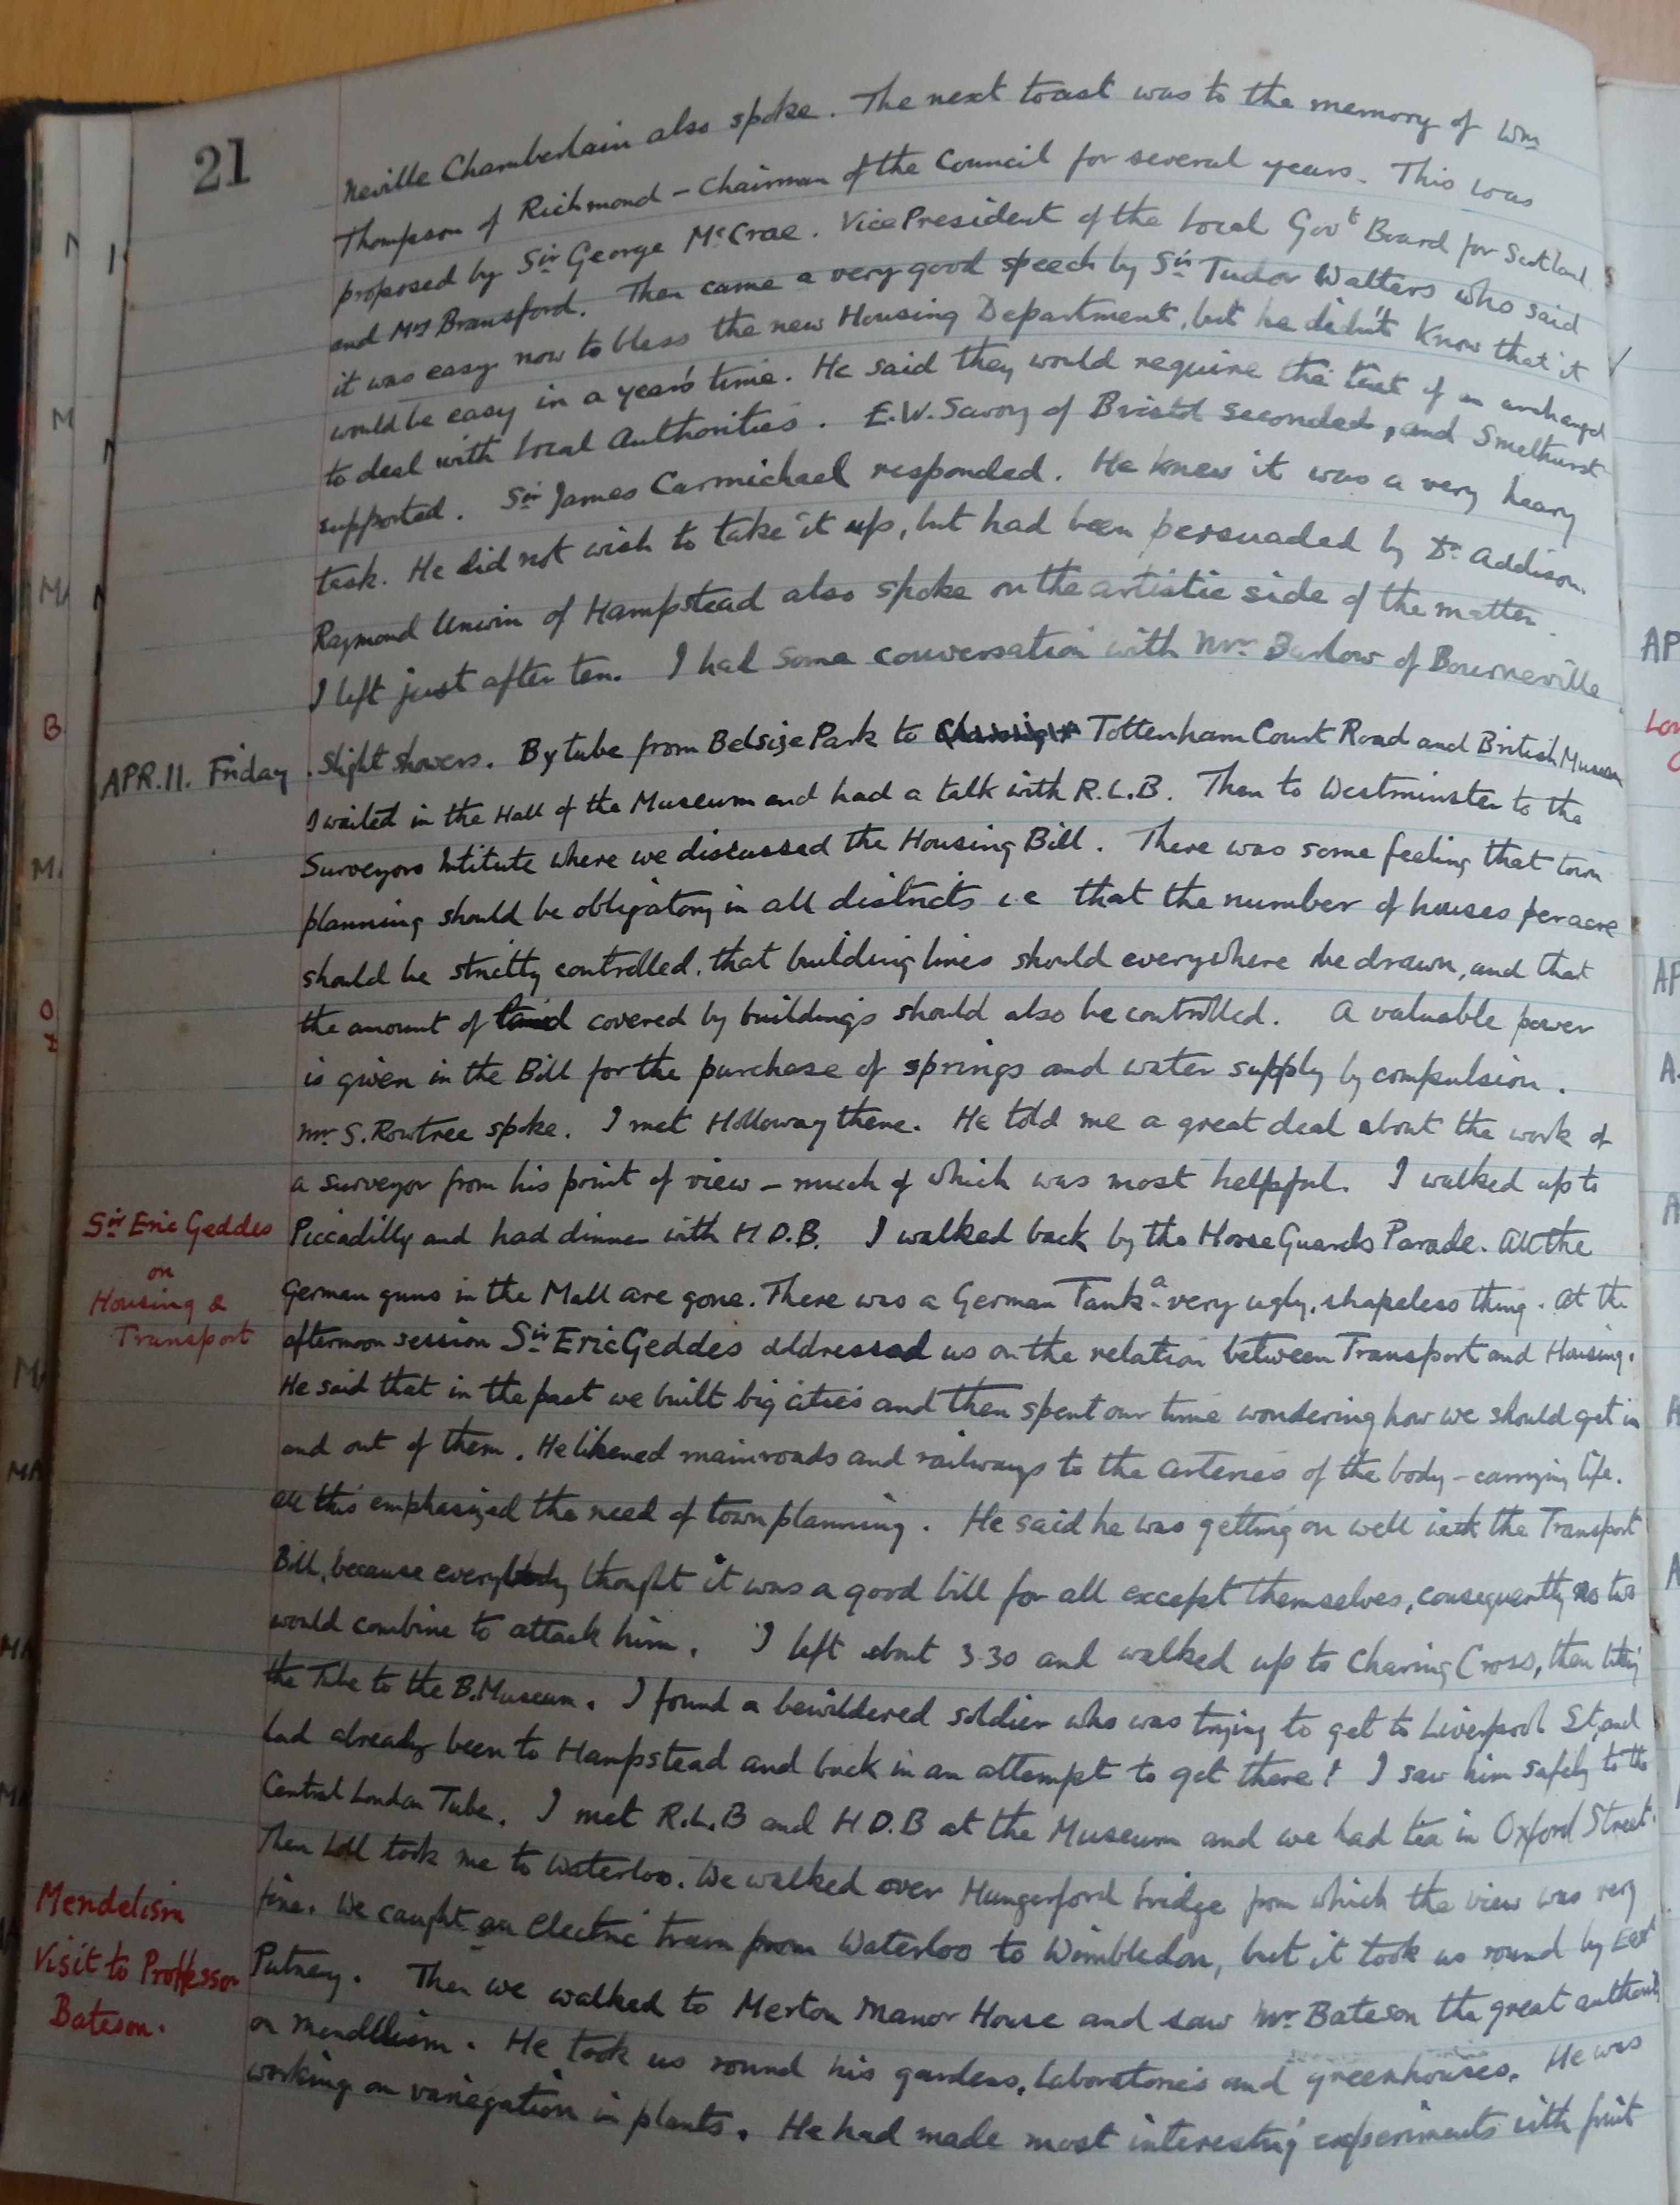 21
Neville Chamberlain also spoke. The next toast was to the memory of Wm
Thompson of Richmond – Chairman of the Council for several years. This was
proposed by Sir George McCrae. Vice President of the Local Govt Board for Scotland
and Mrs Bransford. Then came a very good speech by Sir Tudor Walters who said
it was easy now to bless the new Housing Department, but he didn't know that it
would be easy in a year's time. He said they would require the tact of an archangel
to deal with Local Authorities. E.W. Savory of Bristol seconded, and Smethurst
supported. Sir James Carmichael responded. He knew it was a very heavy
task. He did not wish to take it up, but had been persuaded by Dr Addison.
Raymond Unwin of Hampstead also spoke on the artistic side of the matter.
I left just after ten. I had some conversation with Mr. Barlow of Bourneville
APR. 11. Friday. Slight showers. By tube from Belsize Park to Tottenham Court Road and British Museum
I waited in the Hall of the Museum and had a talk with R.L.B. Then to Westminster to the
Surveyors Intitute where we discussed the Housing Bill. There was some feeling that town
planning should be obligatory in all districts i.e that the number of houses per acre
should be strictly controlled, that building lines should everywhere be drawn, and that
the amount of land covered by buildings should also be controlled. A valuable power
is given in the Bill for the purchase of springs and water supply by compulsion.
Mr S. Rowtree spoke. I met Holloway there. He told me a great deal about the work of
a surveyor from his point of view – much of which was most helpful. I walked up to
Sir Eric Geddes
on
Housing &
Transport
Piccadilly and had dinner with H.D.B. I walked back by the Horse Guards Parade. All the
German guns in the Mall are gone. There was a German Tank – a very ugly, shapeless thing. At the
afternoon session Sir Eric Geddes addressed us on the relation between Transport and Housing.
He said that in the past we built big cities and then spent our time wondering how we should get in
and out of them. He likened main roads and railways to the arteries of the body – carrying life.
All this emphasized the need of town planning. He said he was getting on well with the Transport
Bill, because everybody thought it was a good bill for all except themselves, consequently no two
would combine to attack him. I left about 3.30 and walked up to Charing Cross, then taking
the Tube to the B. Museum. I found a bewildered soldier who was trying to get to Liverpool St, and
had already been to Hampstead and back in an attempt to get there! I saw him safely to the
Central London Tube. I met R.L.B and H.D.B at the Museum and we had tea in Oxford Street.
Then took me to Waterloo. We walked over Hungerford bridge from which the view was very
Mendelism
Visit to Proffessor
Bateson.
fine. We caught an Electric train from Waterloo to Wimbledon, but it took us round by East
Putney. Then we walked to Merton Manor House and saw Mr Bateson the great authority
on Mendelism. He took us round his gardens, laboratories and greenhouses. He was
working on variegation in plants. He had made most interesting experiments with fruit